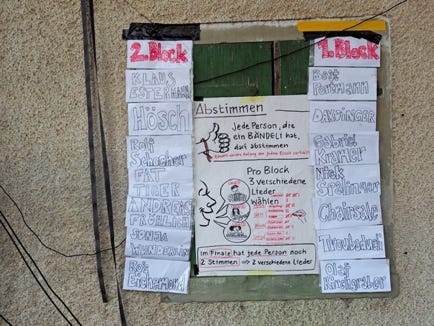 2.Block
KLAUS
ESTERMANN
Hösch
Rolf
Schocher
FAT
TIGER
ANDREAS
SONJA
Rolf
1.Block
Beat
Portmann
DAXDINGER
Gabriel
Kramer
Niek
Chairsale
Troubaduch
Olaf
Abstimmen
Jede Person, die
ein BÄNDELI hat,
darf abstimmen
Pro Block
3 verschiedene
Lieder
wählen
Im Finale hat jede Person noch
2 Stimmen => 2 verschiedene Lieder